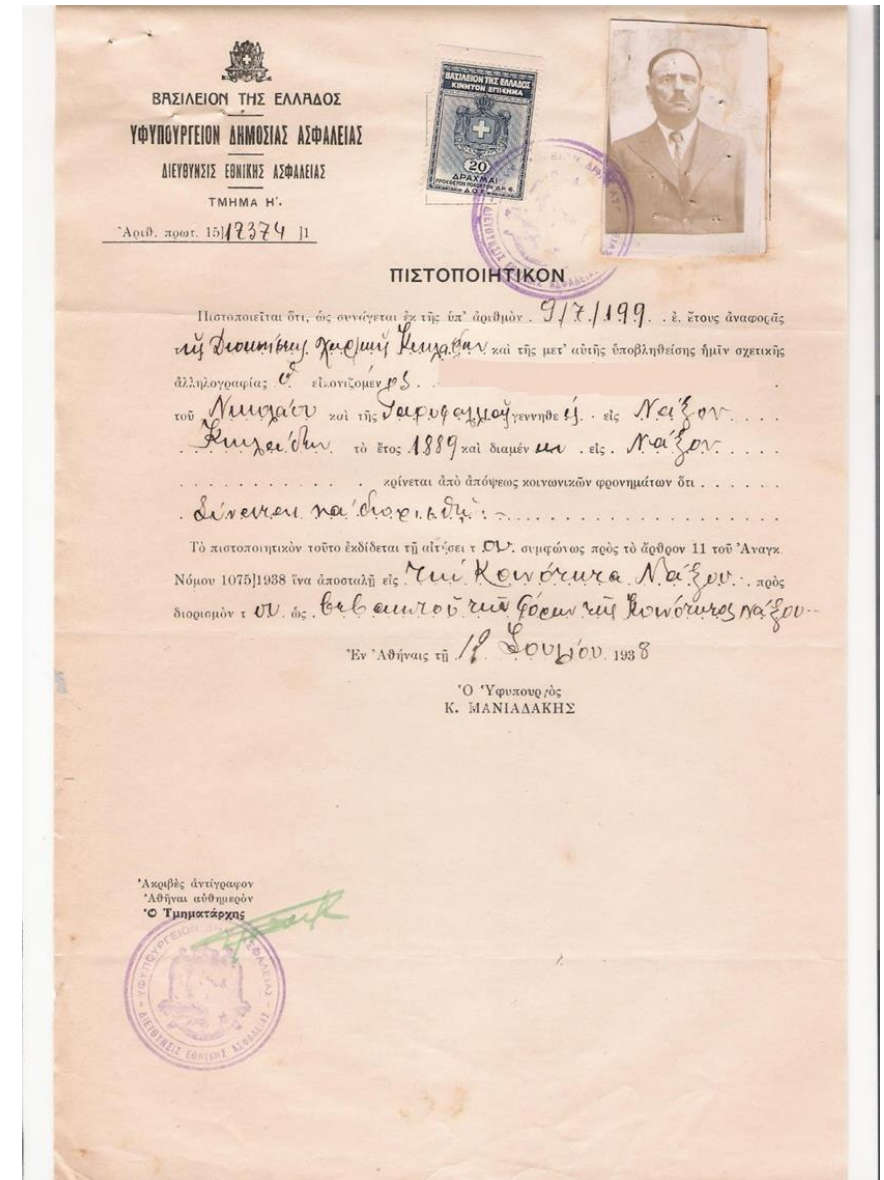 ΒΑΣΙΛΕΙΟΝ ΤΗΣ ΕΛΛΑΔΟΣ
ΥΦΥΠΟΥΡΓΕΙΟΝ ΔΗΜΟΣΙΑΣ ΑΣΦΑΛΕΙΑΣ
ΔΙΕΥΘΥΝΣΙΣ ΕΘΝΙΚΗΣ ΑΣΦΑΛΕΙΑΣ
ΤΜΗΜΑ Η΄.
Ἀριθ. πρωτ. 15]12374 ]1
ΒΑΣΙΛΕΙΟΝ ΤΗΣ ΕΛΛΑΔΟΣ
ΚΙΝΗΤΟΝ ΕΠΙΣΗΜΑ
20
ΔΡΑΧΜΑΙ
ΠΙΣΤΟΠΟΙΗΤΙΚΟΝ
Πιστοποιεῖται ὅτι, ὡς συνάγεται ἐκ τῆς ὑπ' ἀριθμὸν . 9/7/199 . . ἐ. ἔτους ἀναφορᾶς
τῆς Διοικήσεως Χωρ/κῆς Κυκλάδων καὶ τῆς μετ' αὐτῆς ὑποβληθείσης ἡμῖν σχετικῆς
ἀλληλογραφίας ὁ εἰκονιζόμενος .
τοῦ Νικολάου καὶ τῆς Γαρυφαλλιᾶς γεννηθείς . . εἰς Νάξον . . . .
. Κυκλάδων . τὸ ἔτος 1889 καὶ διαμένων . εἰς . Νάξον . . . . .
. . . . . . . . . . . . κρίνεται ἀπὸ ἀπόψεως κοινωνικῶν φρονημάτων ὅτι . . . . . .
. Δύναται νὰ διορισθῇ . – . . . . . . . . . . . . . . . . . .
Τὸ πιστοποιητικὸν τοῦτο ἐκδίδεται τῇ αἰτήσει τ ου . συμφώνως πρὸς τὸ ἄρθρον 11 τοῦ Ἀναγκ
Νόμου 1075]1938 ἵνα ἀποσταλῇ εἰς τὴν Κοινότητα Νάξου . . πρὸς
διορισμὸν τ ου . ὡς . βεβαιωτοῦ τῶν φόρων τῆς Κοινότητος Νάξου –
Ἐν Ἀθήναις τῇ Ἰουλίου 1938
Ὁ Ὑφυπουργὸς
Κ. ΜΑΝΙΑΔΑΚΗΣ
Ἀκριβὲς ἀντίγραφον
Ἀθῆναι αὐθημερὸν
Ὁ Τμηματάρχης
ΥΦΥΠΟΥΡΓΕΙΟΝ ΔΗΜ. ΑΣΦΑΛΕΙΑΣ
ΔΙΕΥΘΥΝΣΙΣ ΕΘΝΙΚΗΣ ΑΣΦΑΛΕΙΑΣ